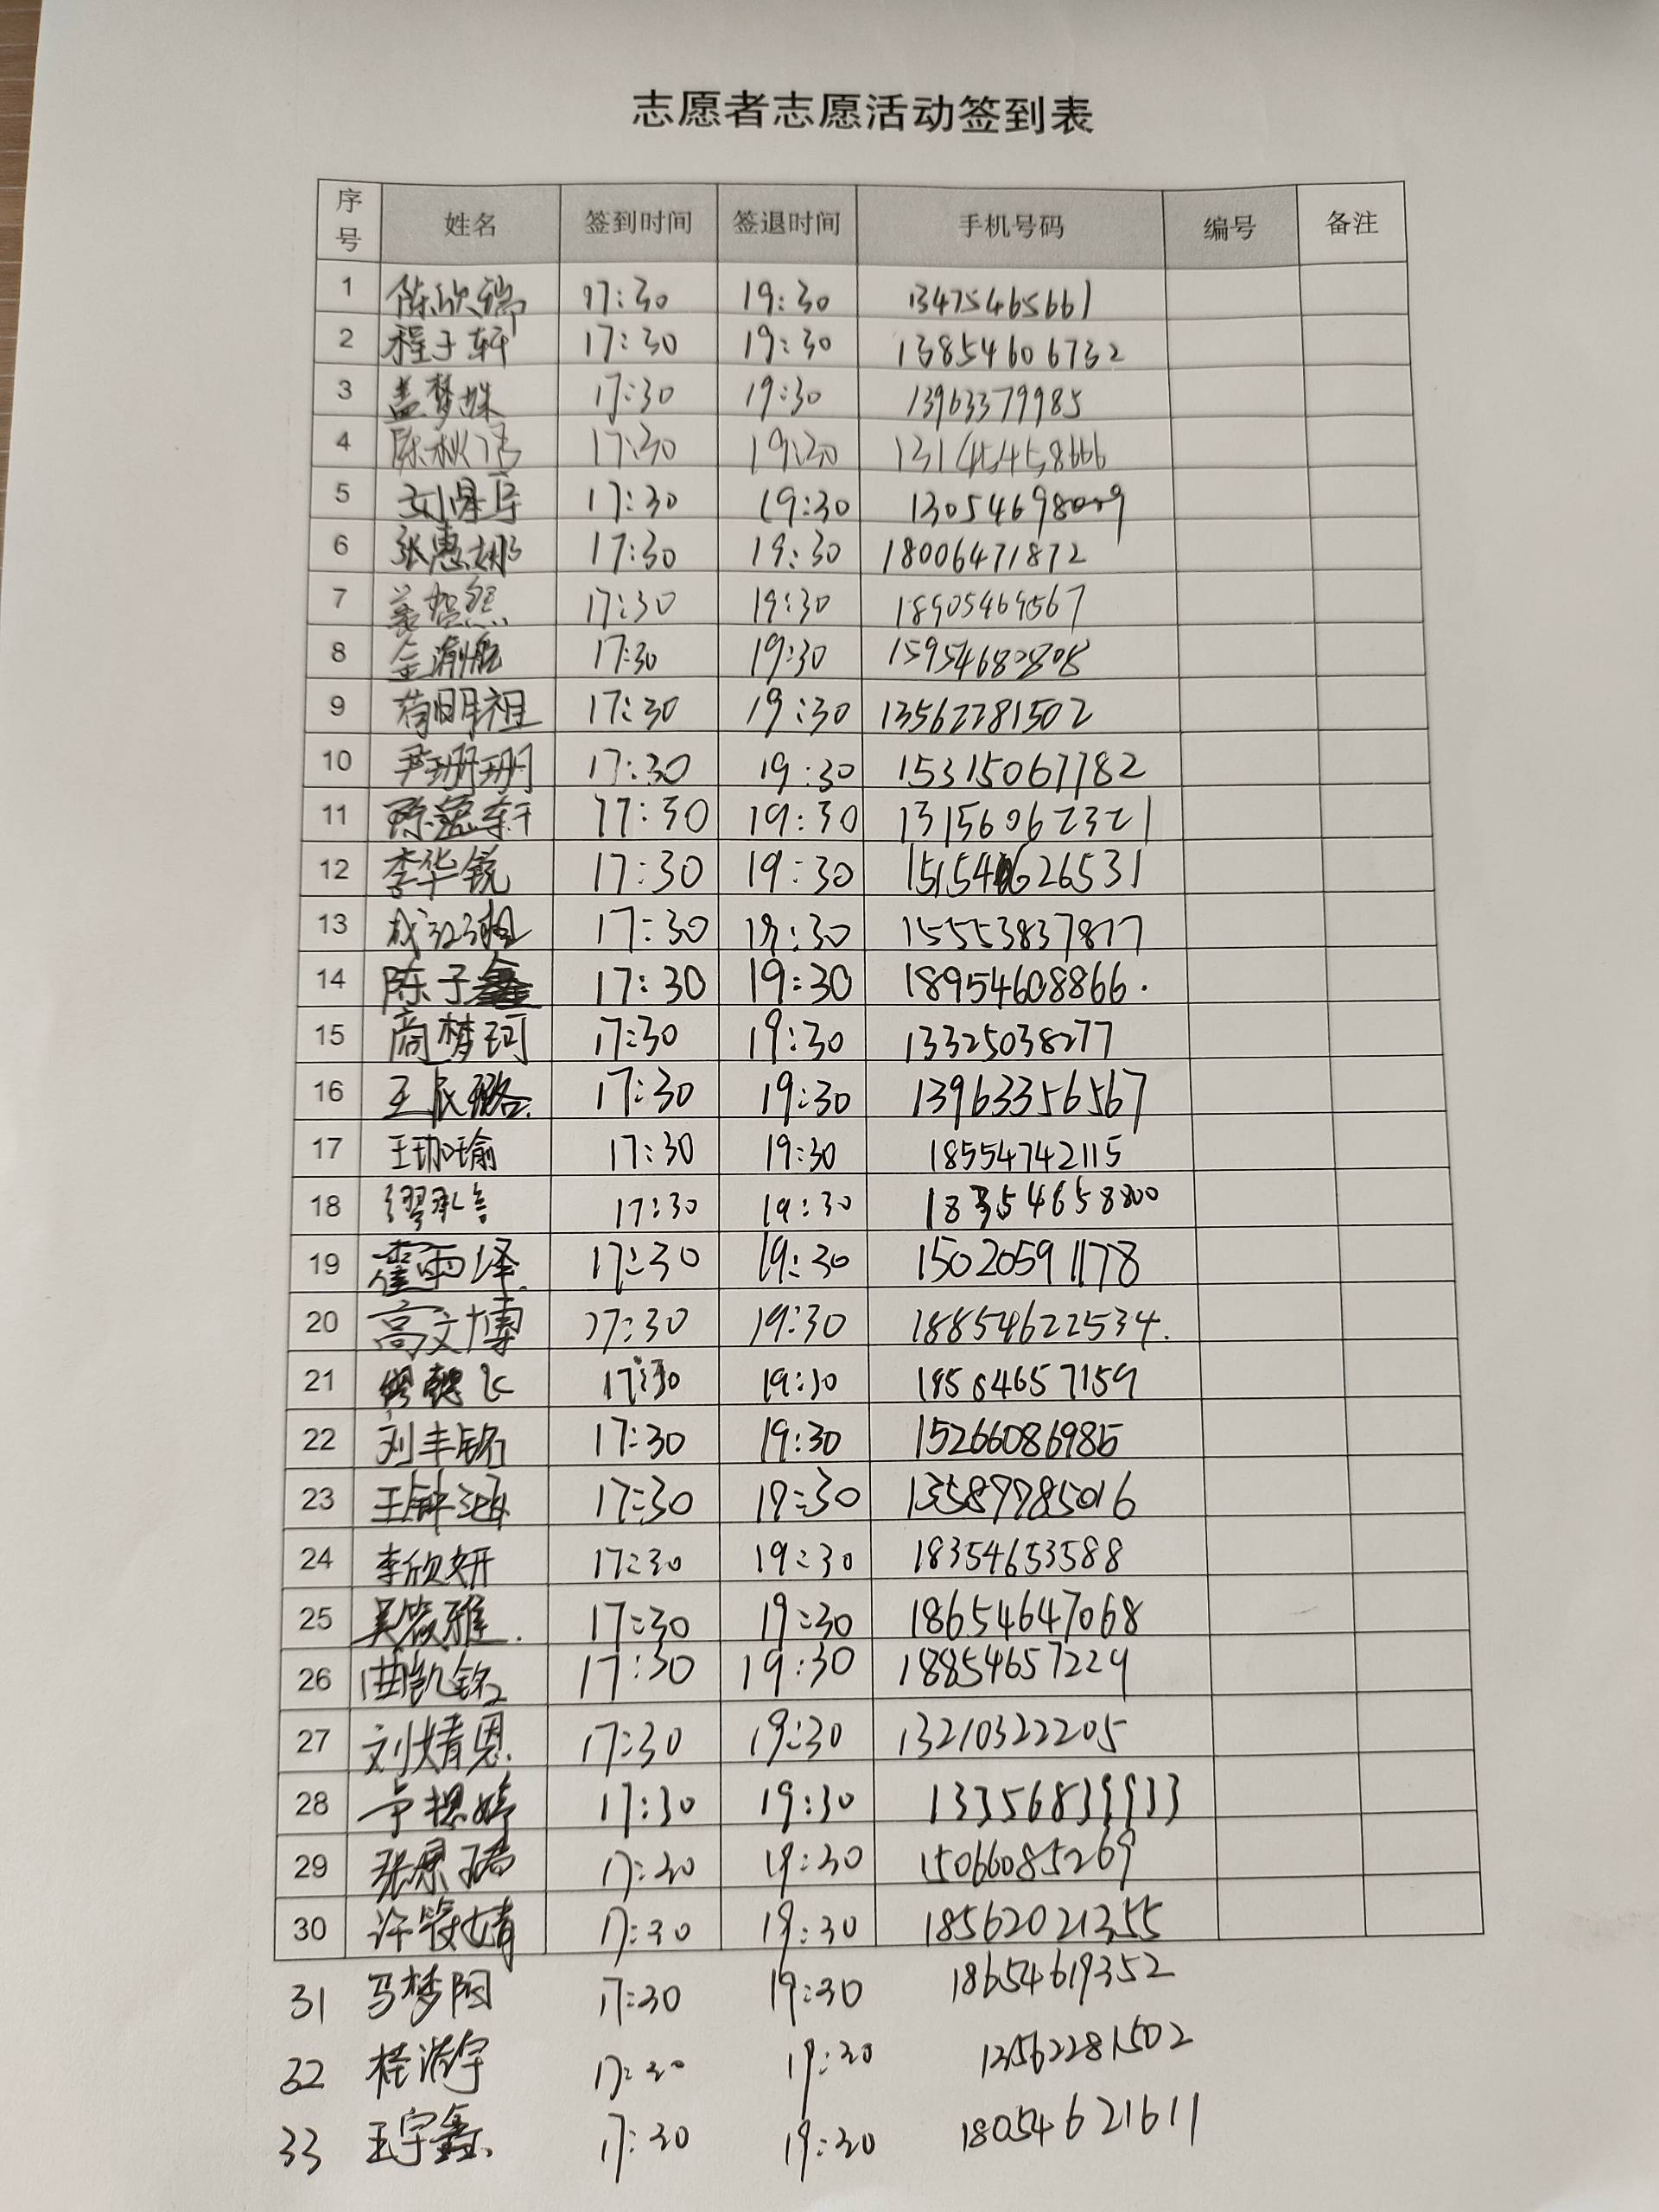 志愿者志愿活动签到表
序号 姓名 签到时间 签退时间 手机号码 编号 备注
1 陈欣瑞 17:30 19:30 13475465661
2 程子轩 17:30 19:30 13854606732
3 盖梦姝 17:30 19:30 13963379985
4 陈秋 17:30 19:30
5 17:30 19:30
6 张惠娜 17:30 19:30 18006471872
7 姜贺然 17:30 19:30 18905469567
8 金 17:30 19:30
9 荷明祖 17:30 19:30 13562281502
10 尹珊珊 17:30 19:30 15315067782
11 轩 17:30 19:30 13156062321
12 李华锐 17:30 19:30 15154626531
13 17:30 19:30 15553837877
14 陈子鑫 17:30 19:30 18954608866.
15 商梦珂 17:30 19:30 13325038277
16 王辰璐. 17:30 19:30 13963356567
17 王珈瑜 17:30 19:30 18554742115
18 17:30 19:30 18354658800
19 霍雨泽. 17:30 19:30 15020591178
20 高文博 17:30 19:30 18854622534.
21 17:30 19:30
22 刘丰铭 17:30 19:30 15266086985
23 王钟涵 17:30 19:30
24 李欣妍 17:30 19:30 18354653588
25 吴筱雅. 17:30 19:30 18654647068
26 曲凯铭 17:30 19:30 18854657229
27 刘婧恩. 17:30 19:30 13210322205
28 17:30 19:30 13356839933
29 张 17:30 19:30 15066085269
30 许筱婧 17:30 19:30 18562021355
31 马梦阳 17:30 19:30 18654619352
32 桂浩宇 17:30 19:30 13562281502
33 王宇鑫. 17:30 19:30 18054621611